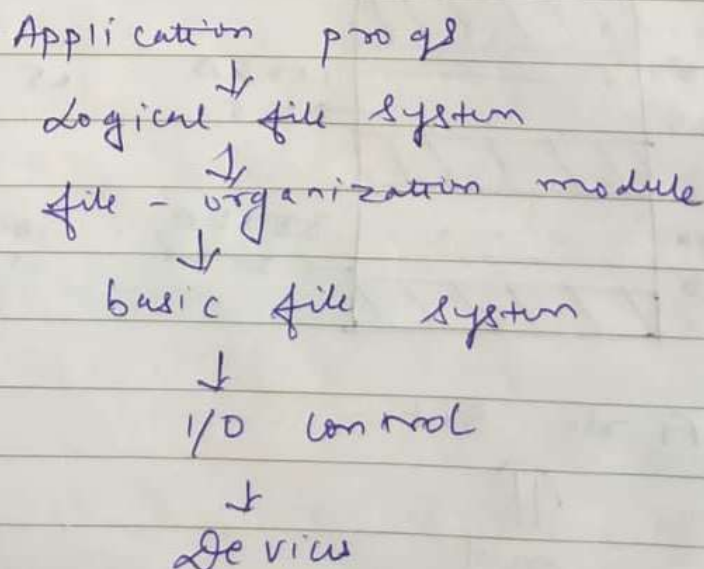 Application progs
↓
Logical file system
↓
file - organization module
↓
basic file system
↓
I/O control
↓
Devices